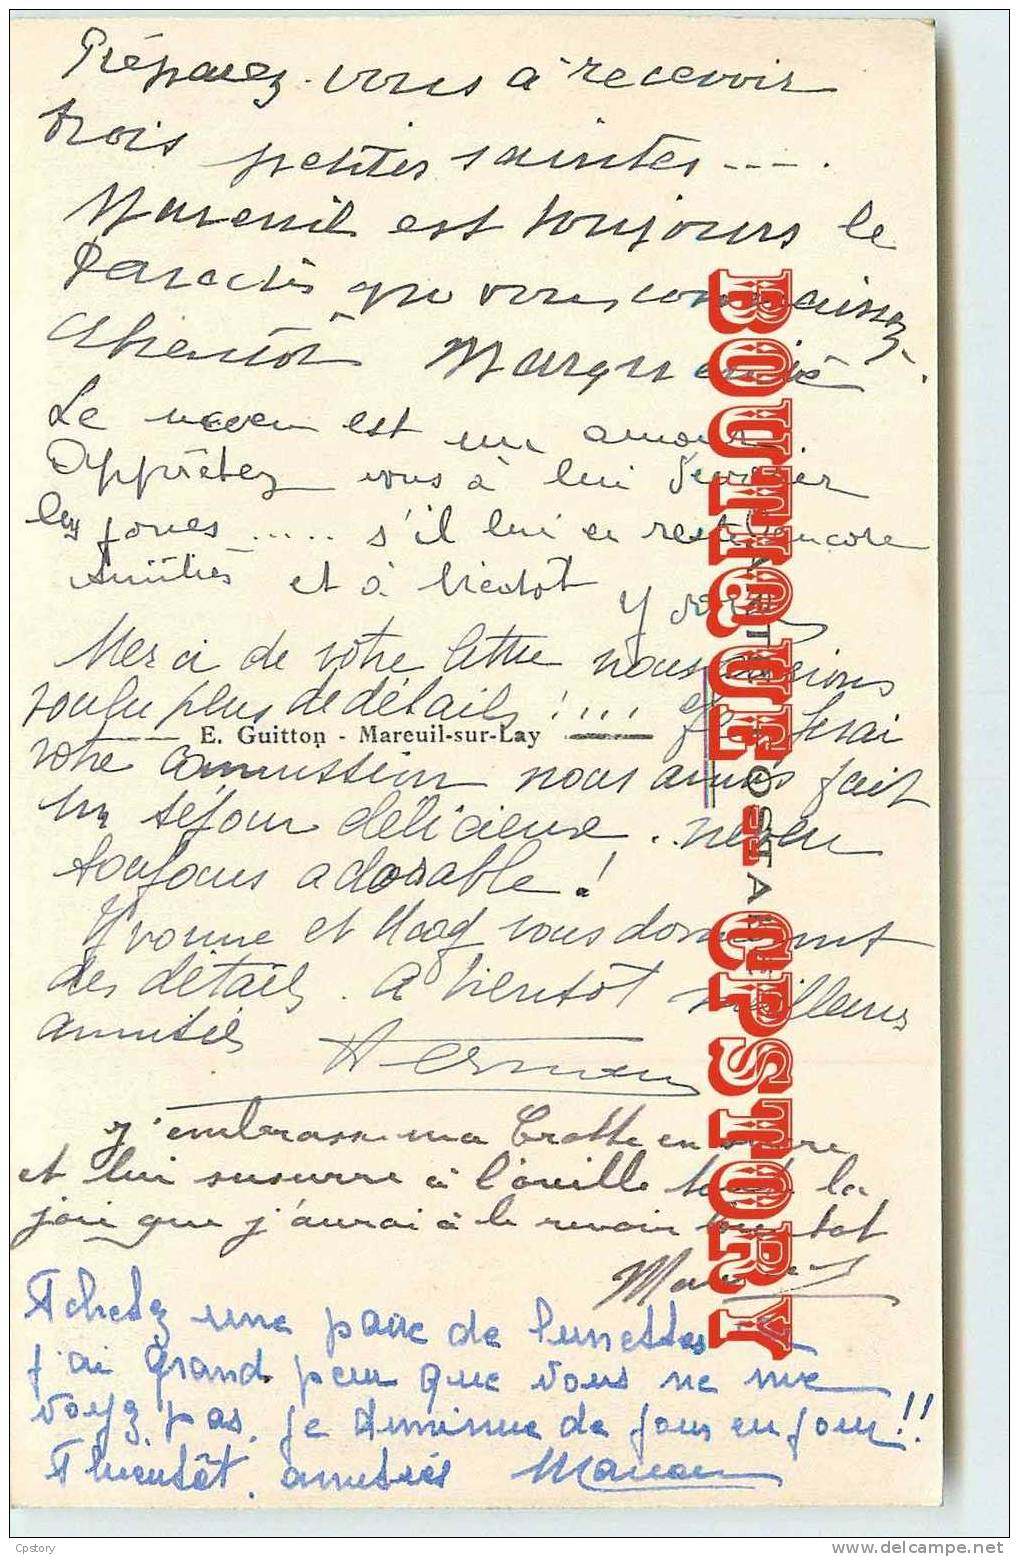 Préparez-vous à recevoir
trois petites saintes ----.
Mareuil est toujours le
Paradis que vous connaissez.
A bientôt Marguerite
Le neveu est un amour.
Apprêtez vous à lui
les joues ..... s'il lui en reste encore
Amitiés et à bientôt Yvonne
Merci de votre lettre nous aurions
voulu plus de détails !... Je ferai
E. Guitton - Mareuil-sur-Lay
votre commission nous avons fait
un séjour délicieuse. neveu
toujours adorable !
Yvonne et vous donneront
des détails. A bientôt meilleurs
amitiés
J'embrasse ma Crotte en sucre
et lui susurre à l'oreille toute la
joie que j'aurai à le revoir bientôt
Achetez une paire de lunettes
j'ai grand peur que vous ne me
voyez pas, je diminue de jour en jour!!
A bientôt. amitiés
BOUTIQUE CPSTORY
CARTE POSTALE
Cpstory
www.delcampe.net